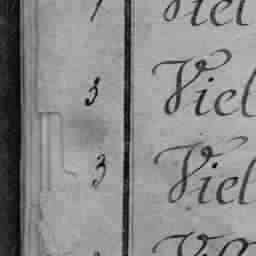 Viel
3 Viel
3 Viel